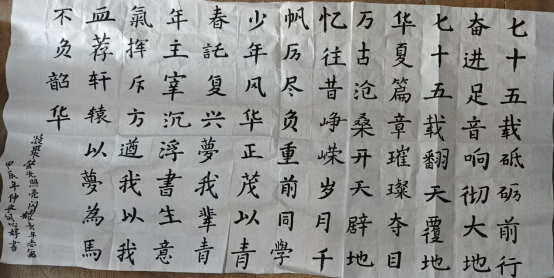 七十五载砥砺前行
奋进足音响彻大地
七十五载翻天覆地
华夏篇章璀璨夺目
万古沧桑开天辟地
忆往昔峥嵘岁月千
帆历尽负重前同学
少年风华正茂以青
春託复兴夢我辈青
年主宰沉浮書生意
氣挥斥方遒我以我
血荐轩辕以夢為馬
不负韶华
凝聚萤火照亮
甲辰年仲